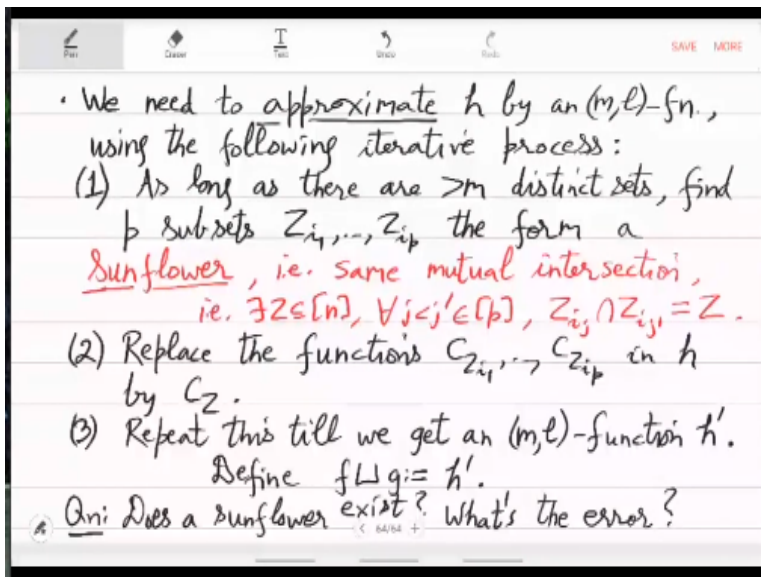 Pen Eraser Text Undo Redo SAVE MORE
• We need to approximate h by an (m,l)-fn.,
using the following iterative process:
(1) As long as there are >m distinct sets, find
p subsets Z_{i_1},..., Z_{i_p} the form a
Sunflower, i.e. same mutual intersection,
i.e. ∃Z⊆[n], ∀j<j'∈[p], Z_{i_j} ∩ Z_{i_{j'}} = Z.
(2) Replace the functions C_{Z_{i_1}},..., C_{Z_{i_p}} in h
by C_Z.
(3) Repeat this till we get an (m,l)-function h'.
Define f⊔g := h'.
Qn: Does a sunflower exist? What's the error?
< 64/64 +